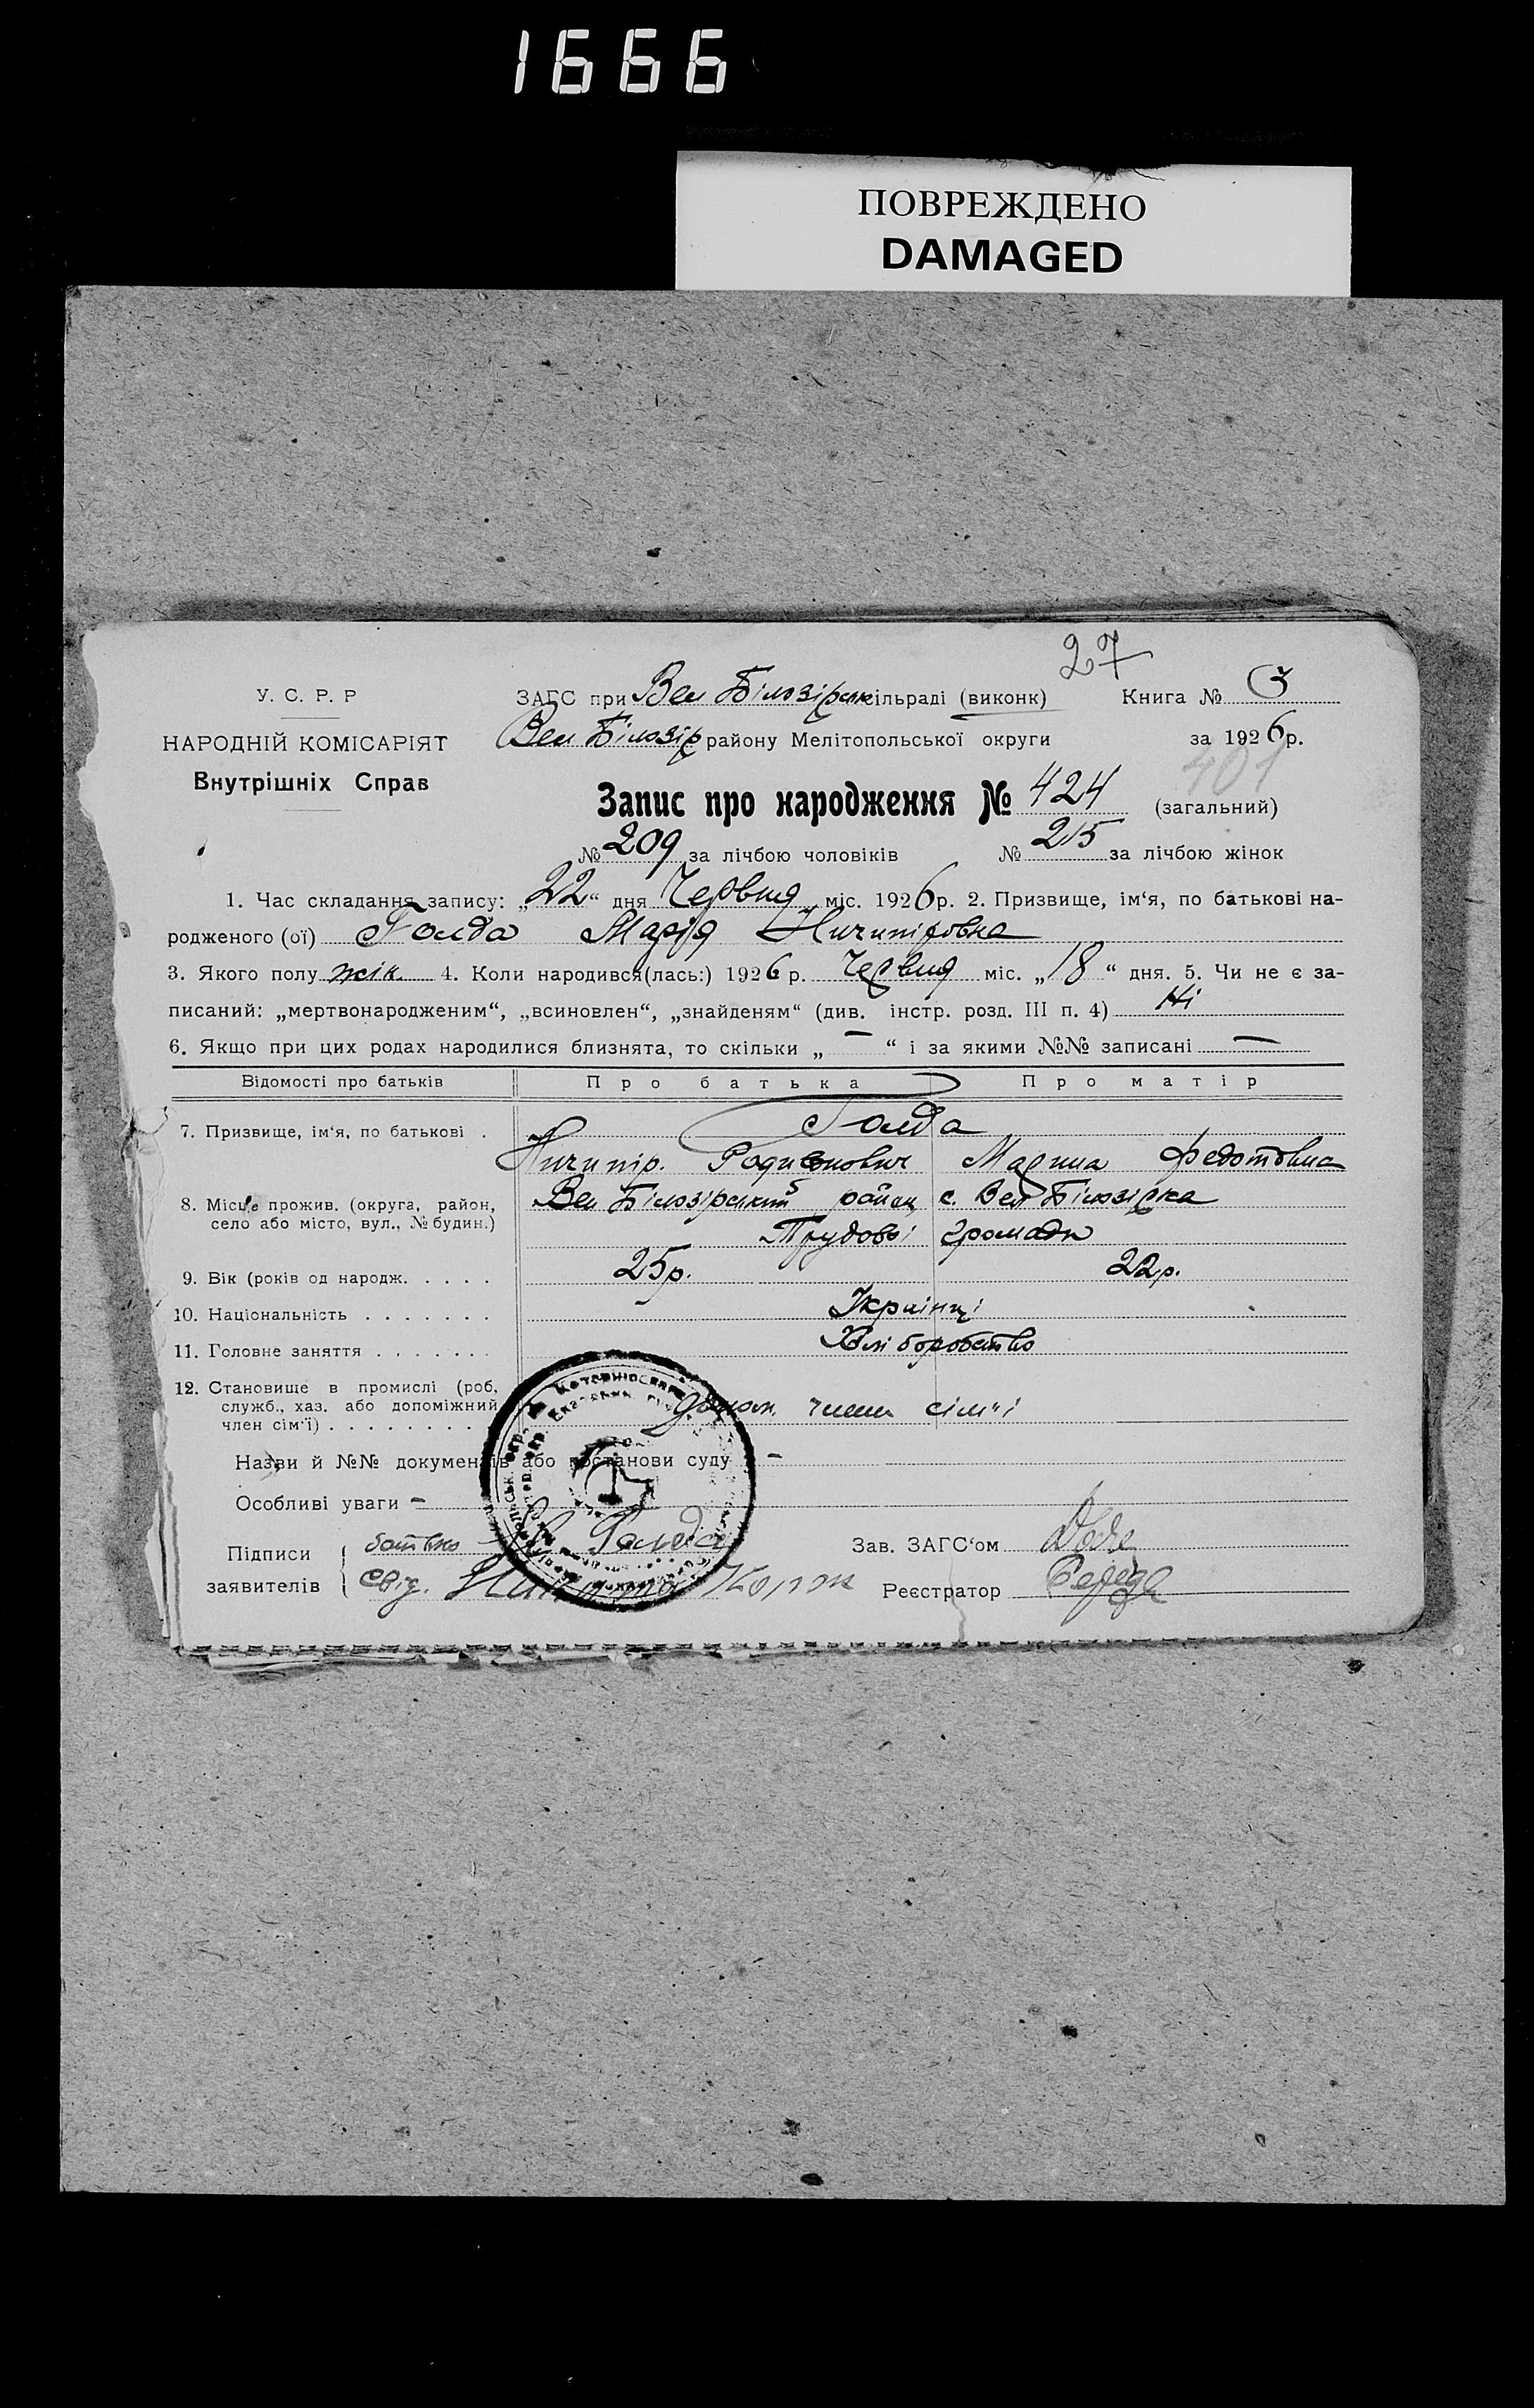 1666
ПОВРЕЖДЕНО
DAMAGED
27
У. С. Р. Р ЗАГС при Вел Білозірск сільраді (виконк) Книга № 3
НАРОДНІЙ КОМІСАРІЯТ Вел Білозір району Мелітопольської округи за 1926 р.
Внутрішніх Справ 401
Запис про народження № 424 (загальний)
№ 209 за лічбою чоловіків № 215 за лічбою жінок
1. Час складання запису: „22“ дня Червня міс. 1926 р. 2. Призвище, ім‘я, по батькові на-
родженого (ої) Голда Марія Ничипіровна
3. Якого полу жін. 4. Коли народився(лась:) 1926 р. Червня міс. „18“ дня. 5. Чи не є за-
писаний: „мертвонародженим“, „всиновлен“, „знайденям“ (див. інстр. розд. III п. 4) Ні
6. Якщо при цих родах народилися близнята, то скільки „ — “ і за якими №№ записані —
Відомості про батьків Про батька Про матір
7. Призвище, ім‘я, по батькові . Голда
Ничипір. Родионович Марина Федотовна
8. Місце прожив. (округа, район, село або місто, вул., № будин.) Вел Білозірський район с. Вел Білозірка
Трудові громади
9. Вік (років од народж. . . . . 25 р. 22 р.
10. Національність . . . . . . . Українці
11. Головне заняття . . . . . . . Хліборобство
12. Становище в промислі (роб,
служб., хаз. або допоміжний
член сім‘ї) . . . . . . . . допом. члени сім"ї
Назви й №№ документів або постанови суду –
Особливі уваги –
Підписи заявителів батько Н Голда Зав. ЗАГС‘ом
свід. Никита Корж Реєстратор